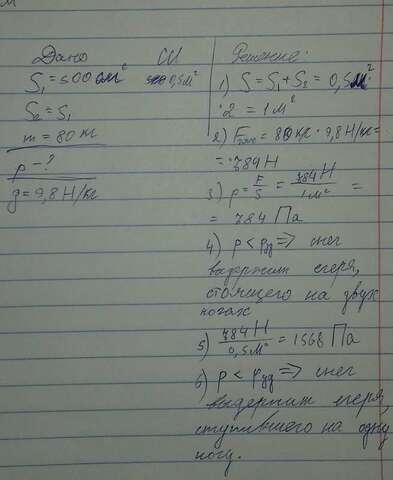 Дано
СИ
Решение:
S₁ = 500 см²
0,5 м²
S₂ = S₁
m = 80 кг
p - ?
g = 9,8 Н/кг
1) S = S₁ + S₂ = 0,5 м² ·
· 2 = 1 м²
2) Fтяж = 80 кг · 9,8 Н/кг =
= 784 Н
3) p = F/S = 784 Н / 1 м² =
= 784 Па
4) p < pуд => снег
выдержит егеря,
стоящего на двух
ногах
5) 784 Н / 0,5 м² = 1568 Па
6) p < pуд => снег
выдержит егеря,
ступившего на одну
ногу.